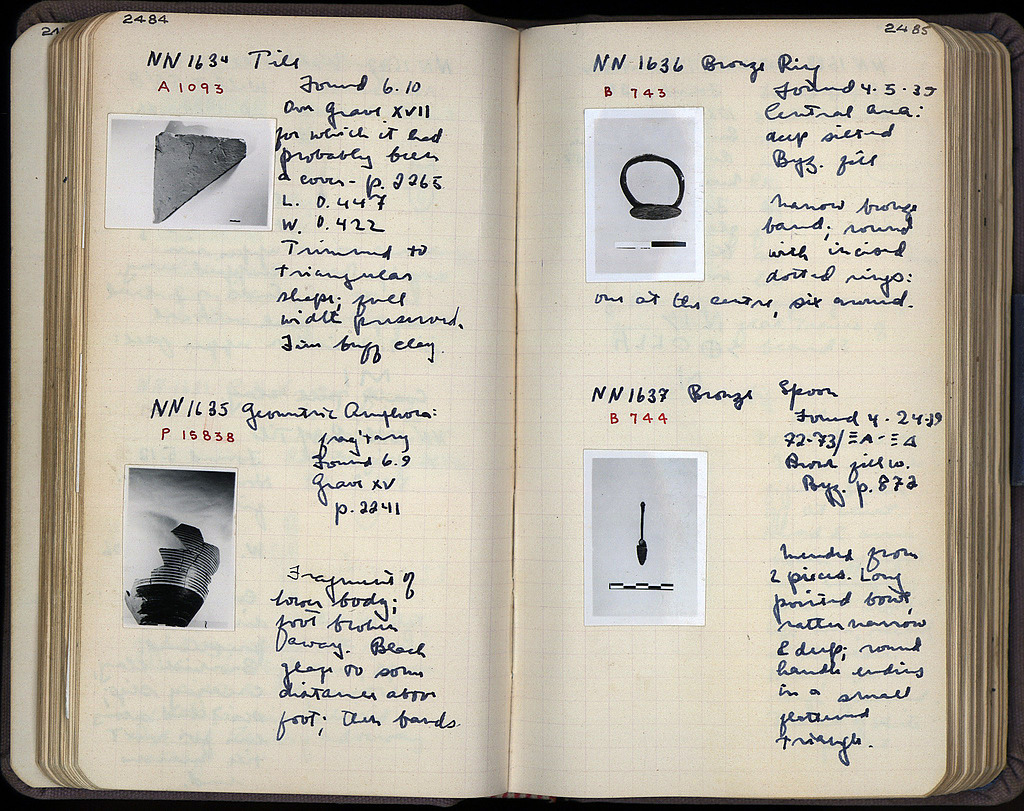 2484
NN 1634 Tile
A 1093
Found 6.10
Over Grave XVII
for which it had
probably been
a cover - p. 2265
L. 0.447
W. 0.422
Trimmed to
triangular
shape; full
width preserved.
Fine buff clay.
NN 1635 Geometric Amphora:
P 15838
frag'tary
Found 6.9
Grave XV
p. 2241
Fragment of
lower body;
foot broken
away. Black
glaze to some
distance above
foot; then bands
2485
NN 1636 Bronze Ring
B 743
Found 4.5.39
Central area:
deep silted
Byz. fill
Narrow bronze
band; round
with incised
dotted rings:
one at the centre, six around.
NN 1637 Bronze Spoon
B 744
Found 4-24-39
72-73/ΞΑ-ΞΔ
Brown fill w.
Byz. p. 872
Mended from
2 pieces. Long
pointed bowl,
rather narrow
& deep; round
handle ending
in a small
flattened
triangle.